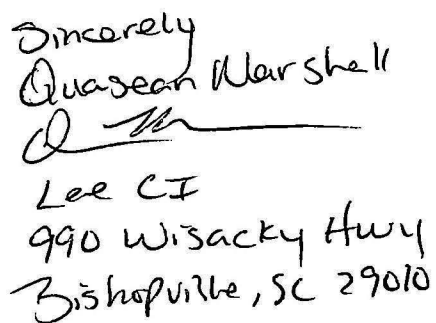 Sincerely
Quasean Marshall
Lee CI
990 Wisacky Hwy
Bishopville, SC 29010